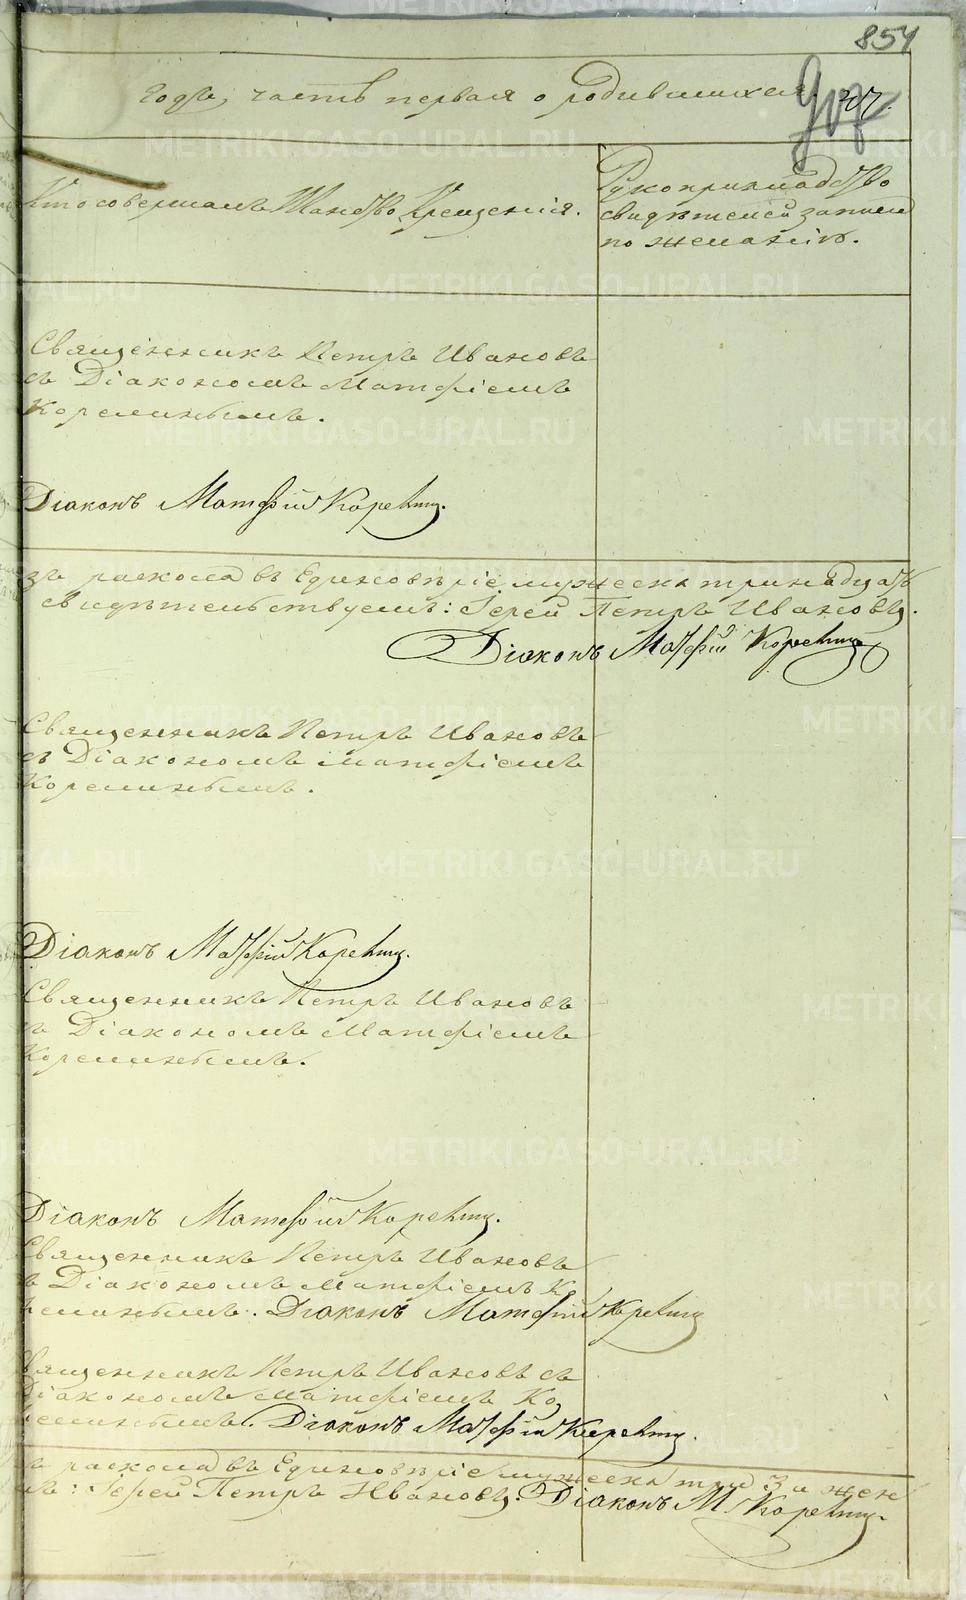 854
года, часть первая о родившихся.
Кто совершалъ Таинство Крещенія.
Рукоприкладство
свидѣтелей записи
по желанію.
Священникъ Петръ Ивановъ
съ Діакономъ Матфіемъ
Діаконъ Матфій
зъ раскола въ Единовѣріе мужеска тринадцать
свидѣтельствуемъ: Іерей Петръ Ивановъ.
Діаконъ Матфій
Священникъ Петръ Ивановъ
съ Діакономъ Матфіемъ
Діаконъ Матфій
Священникъ Петръ Ивановъ
ъ Діакономъ Матфіемъ
Діаконъ Матфій
Священникъ Петръ Ивановъ
ъ Діакономъ Матфіемъ
Діаконъ Матфій
вященникъ Петръ Ивановъ съ
Діакономъ Матфіемъ
Діаконъ Матфій
раскола въ Единовѣріе мужеска три 3 и жен
Іерей Петръ Ивановъ. Діаконъ М.
METRIKI.GASO-URAL.RU